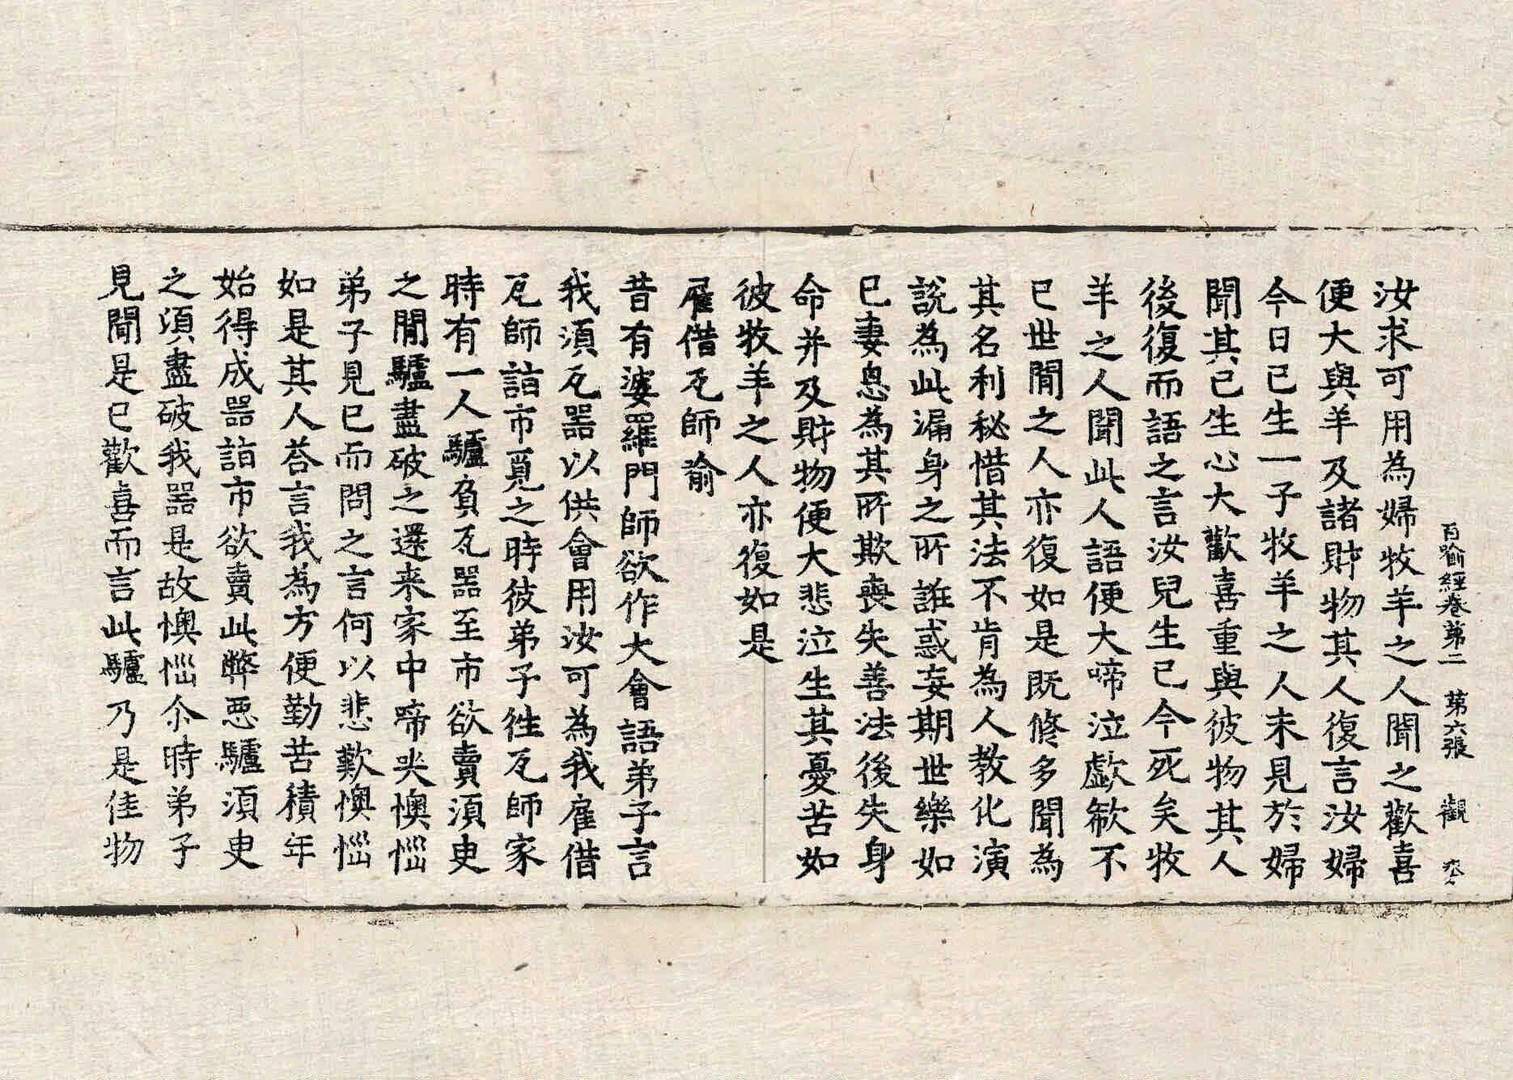 百喻經卷第二 第六張 觀
汝求可用為婦牧羊之人聞之歡喜
便大與羊及諸財物其人復言汝婦
今日已生一子牧羊之人未見於婦
聞其已生心大歡喜重與彼物其人
後復而語之言汝兒生已今死矣牧
羊之人聞此人語便大啼泣歔欷不
已世間之人亦復如是既修多聞為
其名利秘惜其法不肯為人教化演
說為此漏身之所誑惑妄期世樂如
已妻息為其所欺喪失善法後失身
命并及財物便大悲泣生其憂苦如
彼牧羊之人亦復如是
雇借瓦師喻
昔有婆羅門師欲作大會語弟子言
我須瓦器以供會用汝可為我雇借
瓦師詣市覓之時彼弟子往瓦師家
時有一人驢負瓦器至市欲賣須臾
之間驢盡破之還来家中啼哭懊惱
弟子見已而問之言何以悲歎懊惱
如是其人荅言我為方便勤苦積年
始得成器詣市欲賣此弊惡驢須臾
之須盡破我器是故懊惱尒時弟子
見聞是已歡喜而言此驢乃是佳物